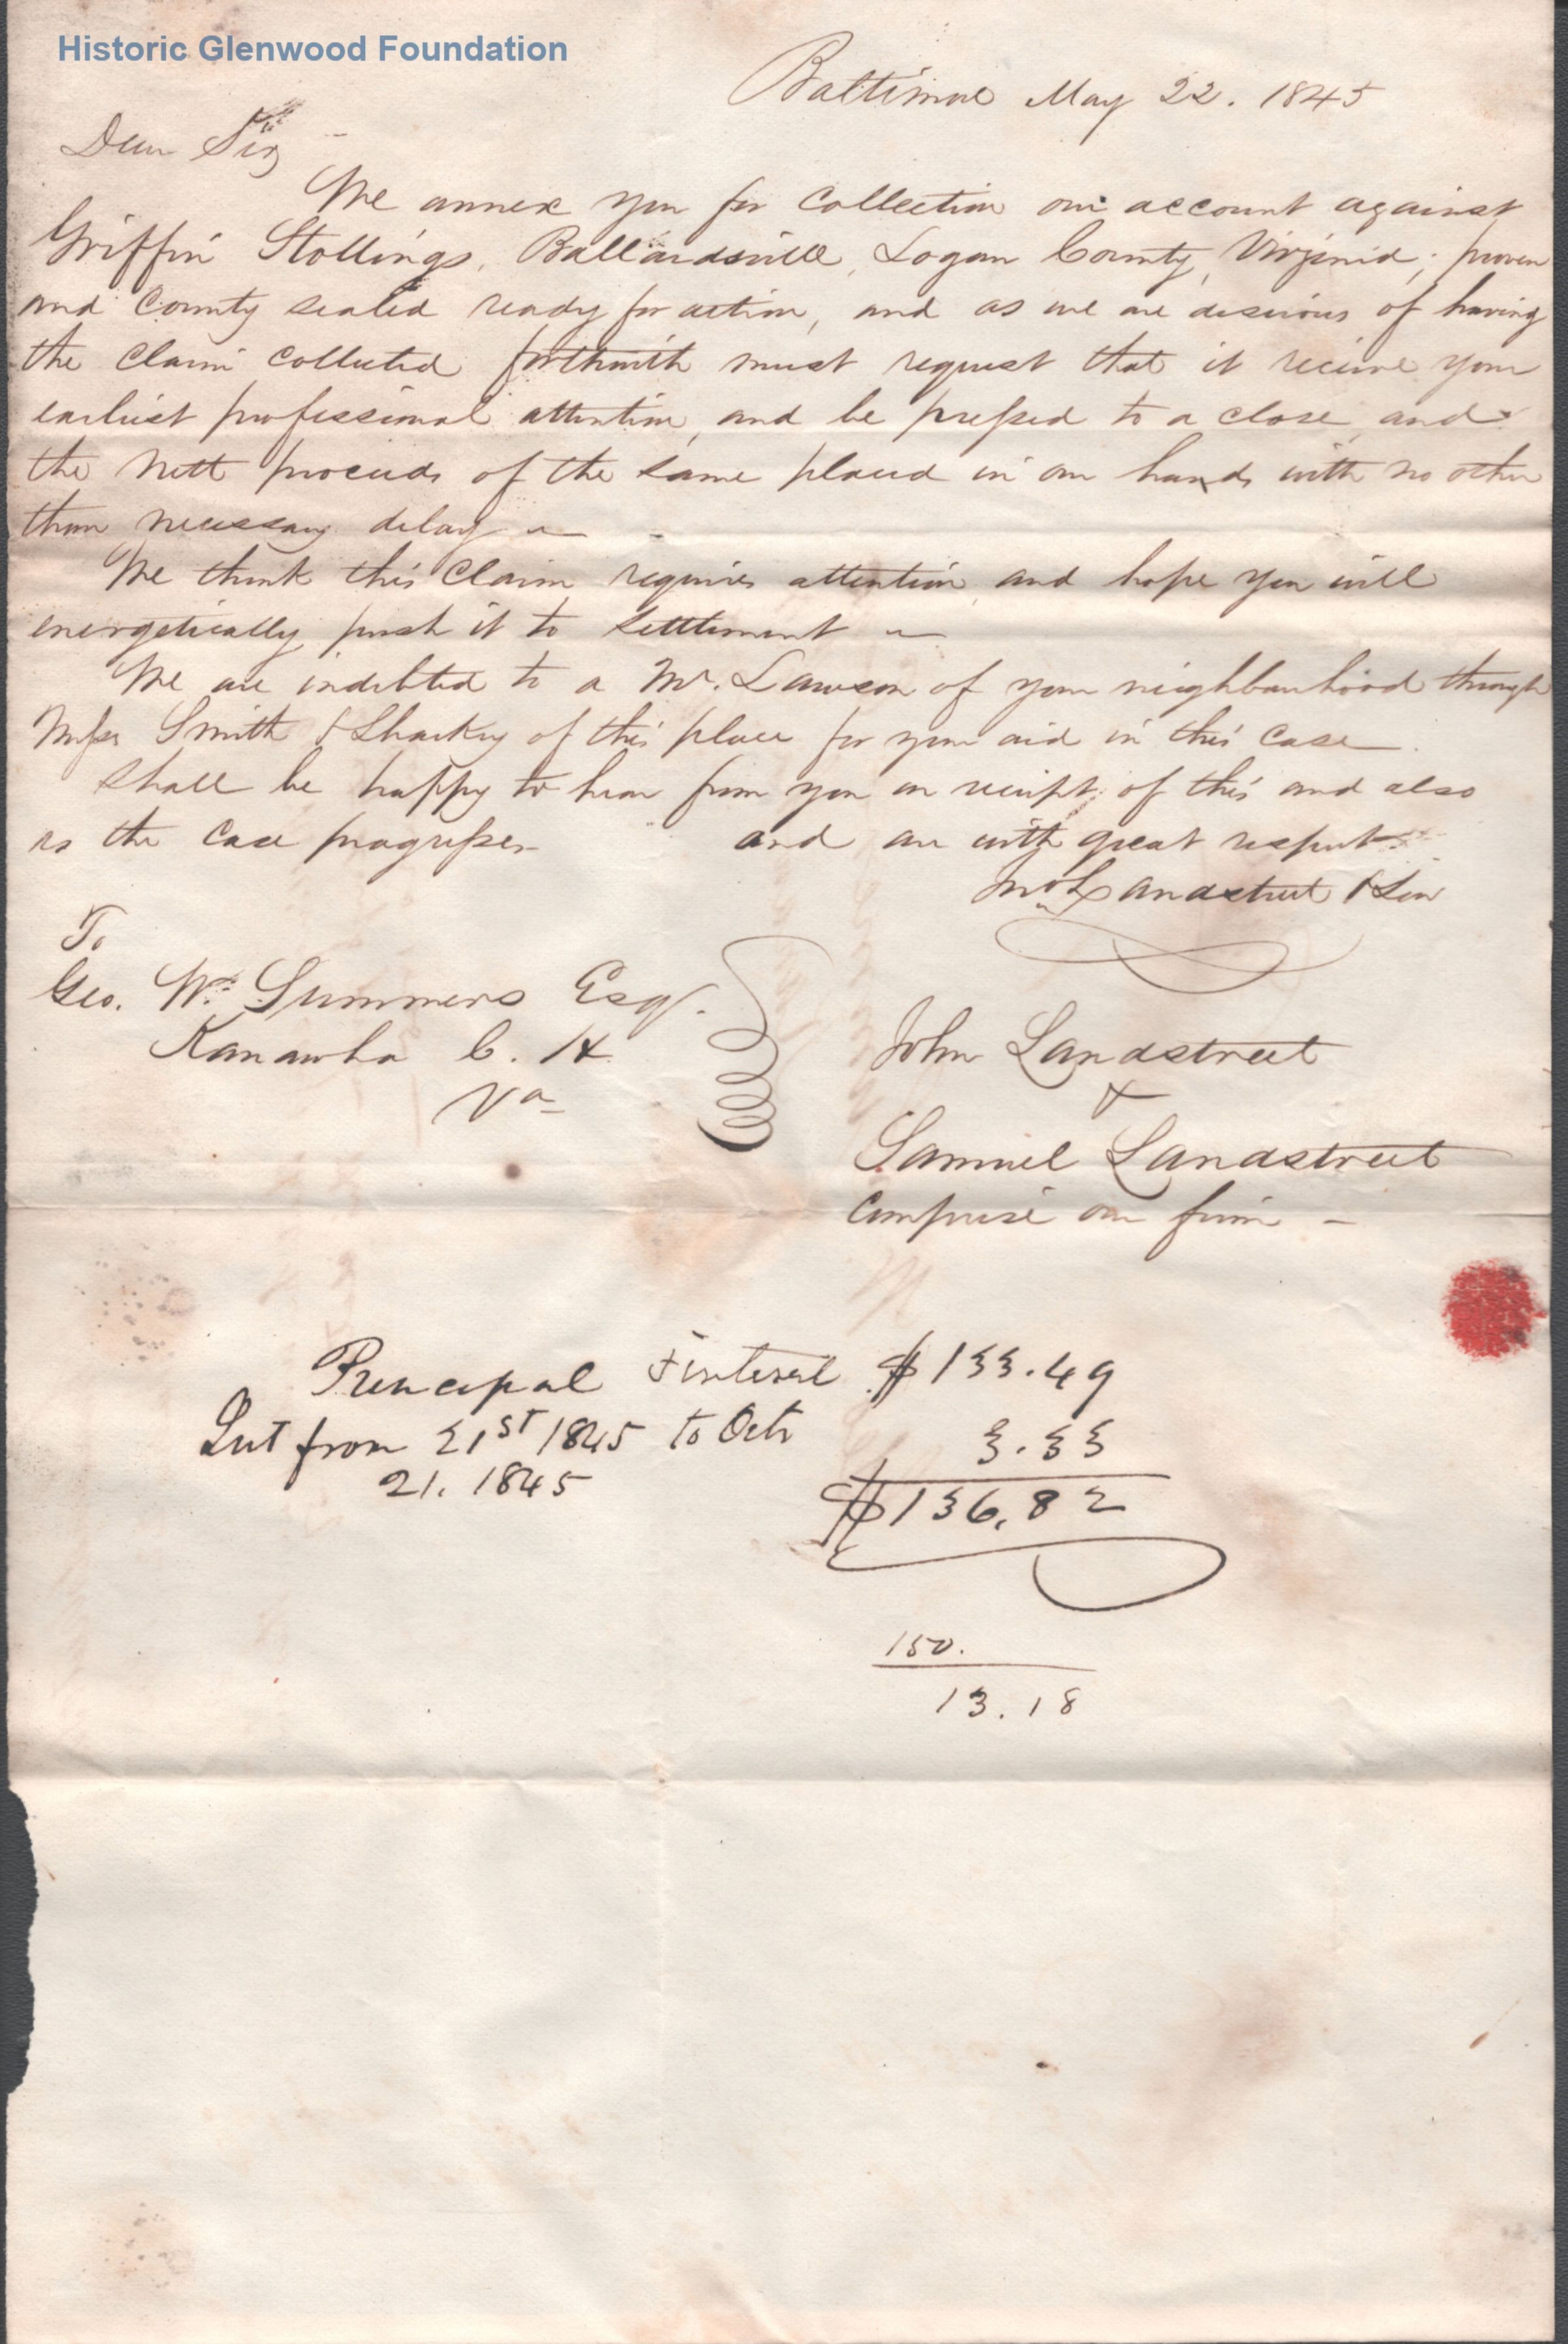 Historic Glenwood Foundation
Baltimore May 22. 1845
Dear Sir,
We annex you for collection our account against
Griffin Stollings, Ballardsville, Logan County, Virginia; proven
and County sealed ready for action, and as we are desirous of having
the claim collected forthwith must request that it receive your
earliest professional attention, and be pressed to a close, and
the nett proceeds of the same placed in our hands with no other
than necessary delay —
We think this claim requires attention, and hope you will
energetically push it to settlement —
We are indebted to a Mr. Lawson of your neighbourhood through
Messr Smith & Sharkey of this place for your aid in this case —.
Shall be happy to hear from you on receipt of this and also
as the case progresses — and are with great respect
Jno Landstreet & Son
To
Geo. W. Summers Esqr.
Kanawha C. H.
Va
John Landstreet
&
Samuel Landstreet
comprise our firm —
Principal & interest $133.49
Int from 21st 1845 to Octr 3.33
21. 1845
$136.82
150.
13.18